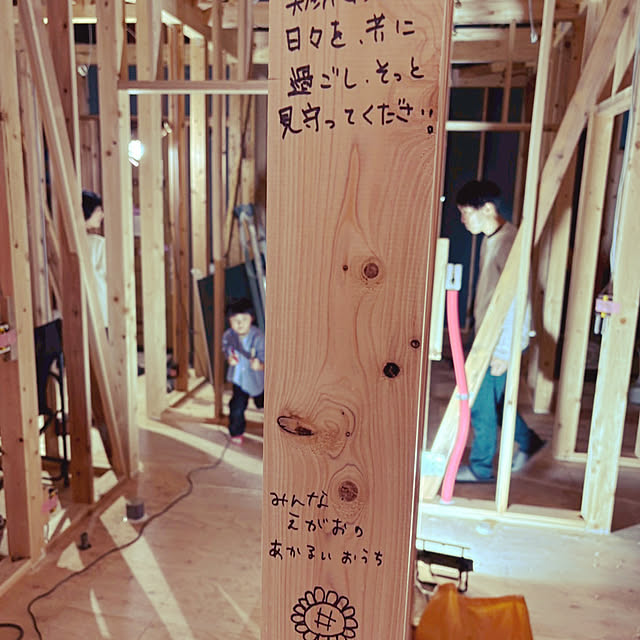 日々を、共に
過ごし、そっと
見守ってください。
みんな
えがおの
あかるいおうち